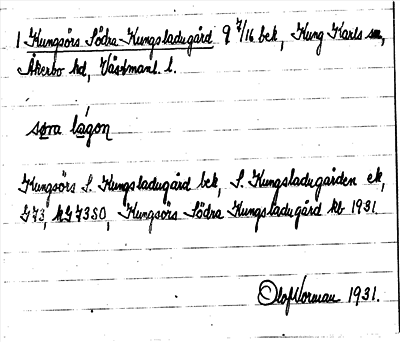 1 Kungsörs Södra Kungsladugård 9 7/16 bek, Kung Karls sn,
Åkerbo hd, Västmanl. l.
søra lágon
Kungsörs S. Kungsladugård bek, S. Kungsladugården ek,
G73, hG73SO, Kungsörs Södra Kungsladugård kb 1931.
Olof Norman 1931.